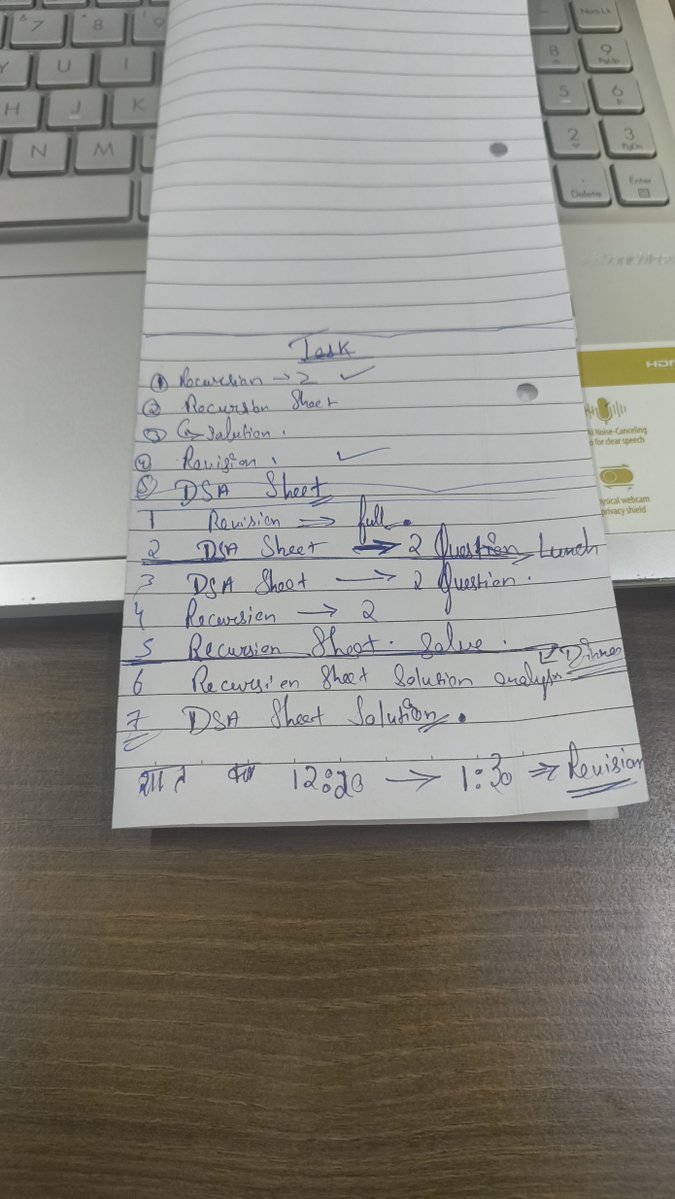 7 8 9
Y U I
H J K
N M
Num Lk
8 9 PgUp
5 6
2 3 PgDn
. Delete Enter
HDM
Noise-Canceling
for clear speech
ysical webcam
privacy shield
Task
① Recursion → 2 ✓
② Recursion Sheet
③ ↳ Solution.
④ Revision. ✓
⑤ DSA Sheet
1 Revision ⇒ full.
2 DSA Sheet → 2 Question → Lunch
3 DSA Sheet → 2 Question.
4 Recursion → 2
5 Recursion Sheet. Solve.
Dinner
6 Recursion Sheet Solution analysis
7 DSA Sheet Solution.
रात का 12:20 → 1:30 ⇒ Revision